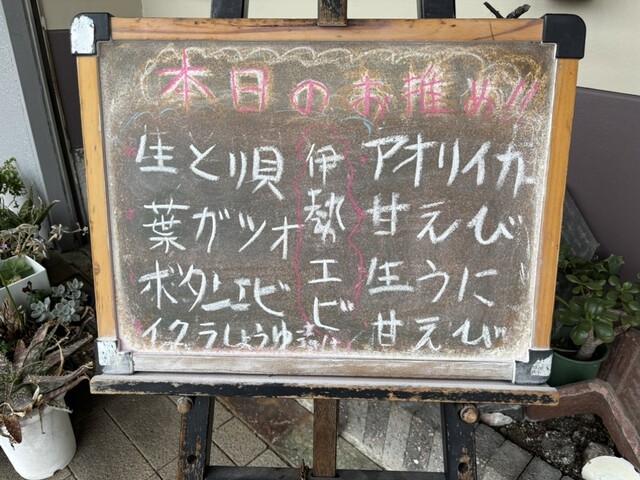 本日のお推め!!
生とり貝
葉ガツオ
ボタンエビ
イクラしょうゆ漬け
伊勢エビ
アオリイカ
甘えび
生うに
甘えび